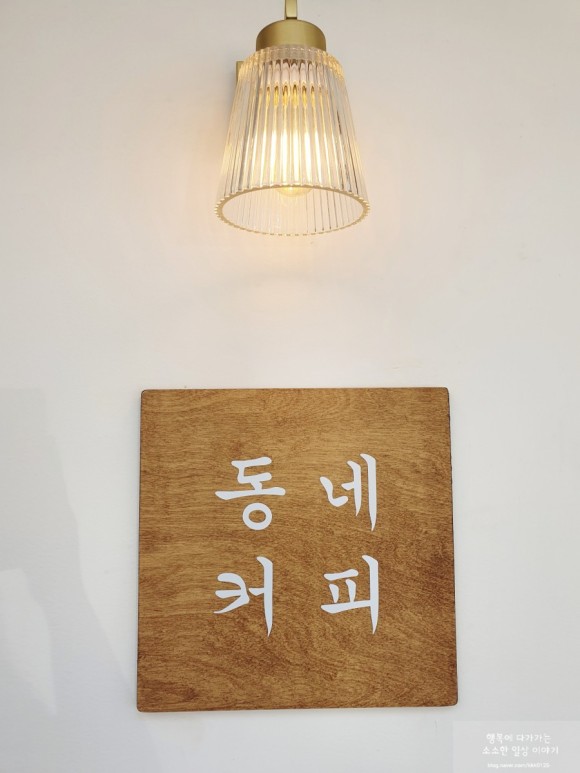 동네
커피
행복에 다가가는
소소한 일상 이야기